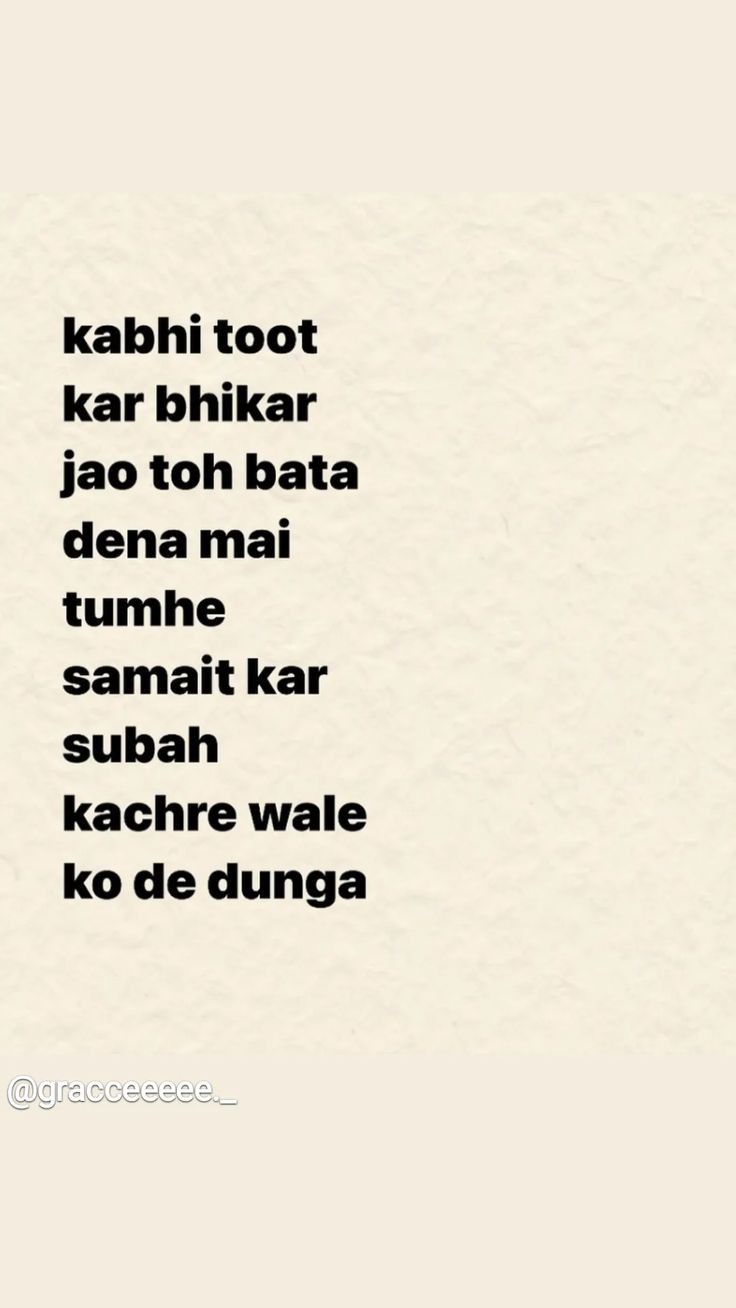 kabhi toot
kar bhikar
jao toh bata
dena mai
tumhe
samait kar
subah
kachre wale
ko de dunga
@gracceeeee._